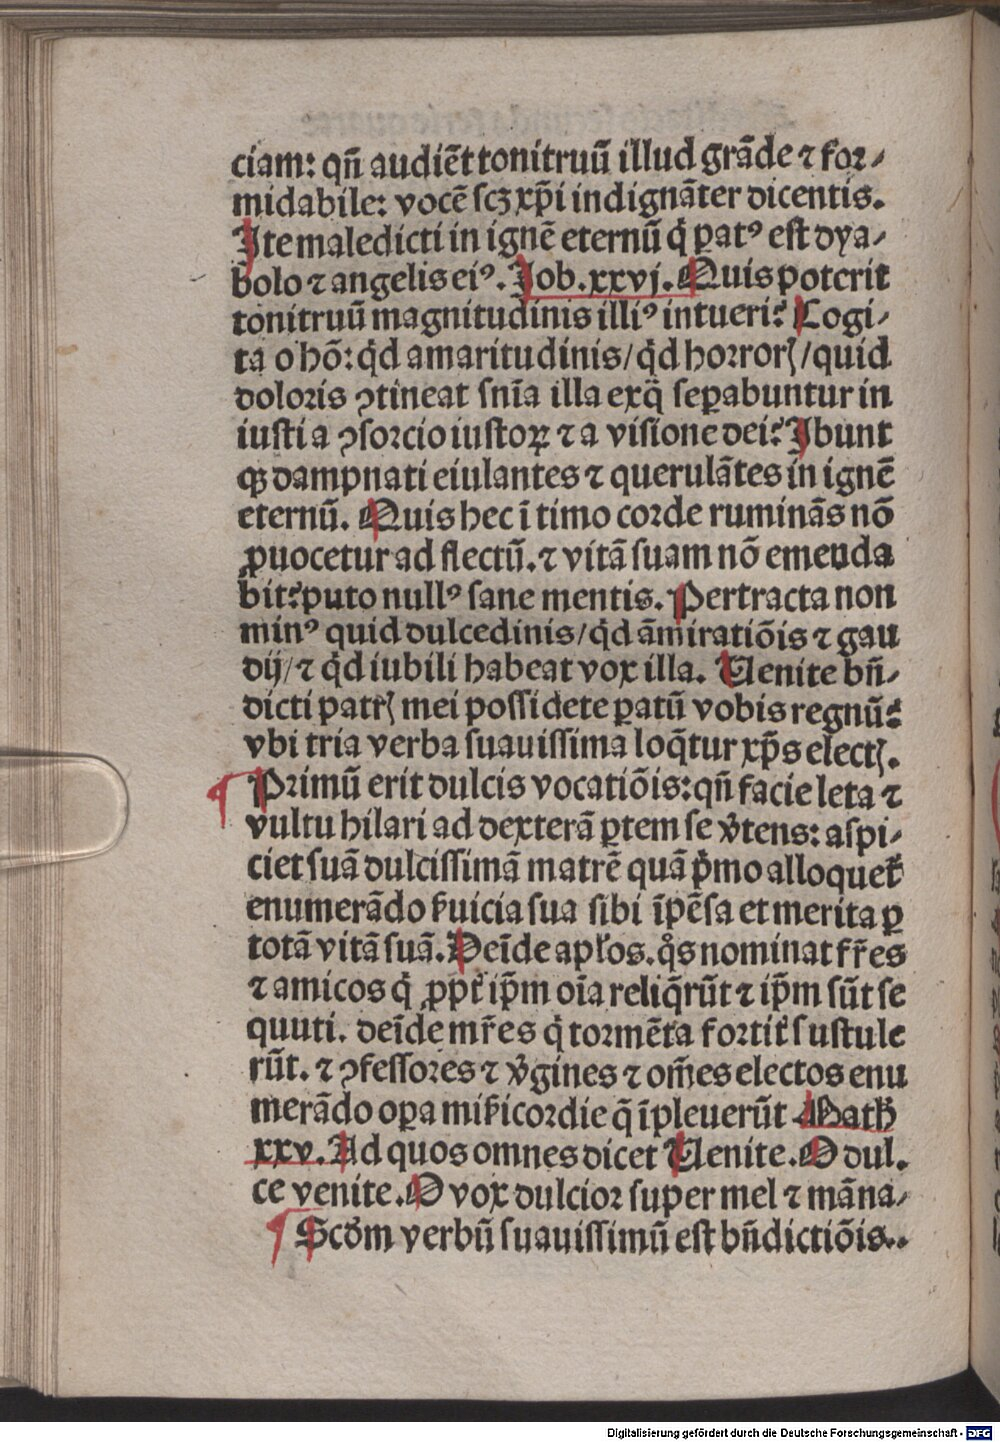 ciam: qñ audiēt tonitruū illud grāde ⁊ for⸗
midabile: vocē scꝫ xp̄i indignāter dicentis.
Ite maledicti in ignē eternū q̇ ꝑatꝰ est dya⸗
bolo ⁊ angelis eiꝰ. Job. xxvj. Quis poterit
tonitruū magnitudinis illiꝰ intueri? Cogi⸗
ta o hō: q̇d amaritudinis/ q̇d horrorꝭ/ quid
doloris ꝯtineat snīa illa ex q̄ seꝑabuntur in
iusti a ꝯsorcio iustoꝝ ⁊ a visione dei? Ibunt
qꝫ dampnati eiulantes ⁊ querulātes in ignē
eternū. Quis hec ī timo corde ruminās nō
ꝓuocetur ad flectū. ⁊ vitā suam nō emenda
bit? puto nullꝰ sane mentis. Pertracta non
minꝰ quid dulcedinis/ q̇d āmiratiōis ⁊ gau
dij/ ⁊ q̇d iubili habeat vox illa. Uenite bñ⸗
dicti patrꝭ mei possidete ꝑatū vobis regnū:
vbi tria verba suauissima loq̄tur xp̄s electꝭ.
¶ Primū erit dulcis vocatiōis: qñ facie leta ⁊
vultu hilari ad dexterā ꝑtem se v̓tens: aspi⸗
ciet suā dulcissimā matrē quā p̓mo alloquet᷑
enumerādo s̓uicia sua sibi īpēsa et merita ꝑ
totā vitā suā. Deīde apl̓os. q̊s nominat fr̄es
⁊ amicos q̇ ꝓpt̓ ip̄m oīa reliq̄rūt ⁊ ip̄m sūt se
quuti. deīde mr̄es q̇ tormēta fortit̓ sustule
rūt. ⁊ ꝯfessores ⁊ v̓gines ⁊ om̄es electos enu
merādo oꝑa mis̓icordie q̄ īpleuerūt Math̓
xxv. Ad quos omnes dicet Uenite. O dul.
ce venite. O vox dulcior super mel ⁊ māna⸗
¶ Scd̓m verbū suauissimū est bñdictiōis..
Digitalisierung gefördert durch die Deutsche Forschungsgemeinschaft - DFG